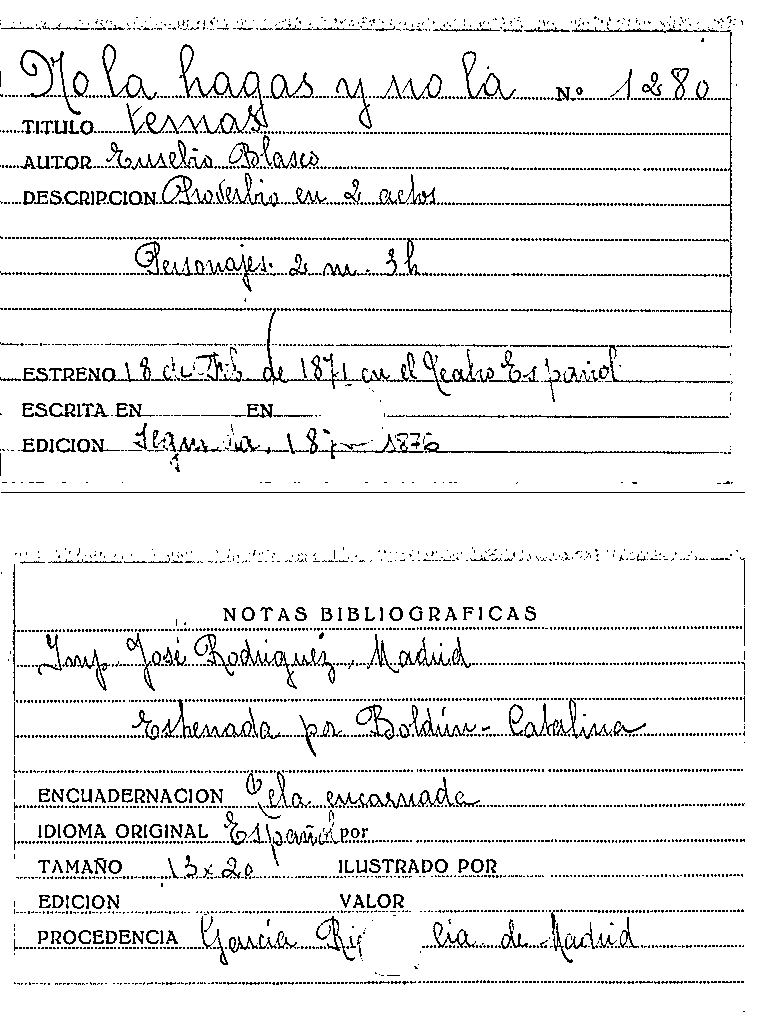 No la hagas y no la Nº 1280
TITULO temas
AUTOR Eusebio Blasco
DESCRIPCION Proverbio en 2 actos
Personajes. 2 m. 3 h
ESTRENO 18 de Feb de 1871 en el Teatro Español
ESCRITA EN EN
EDICION Segunda. 187 1876
NOTAS BIBLIOGRAFICAS
Imp. José Rodriguez. Madrid
Estrenada por Boldún - Catalina
ENCUADERNACION Tela encarnada
IDIOMA ORIGINAL Español por
TAMAÑO 13 x 20 ILUSTRADO POR
EDICION VALOR
PROCEDENCIA García de Madrid